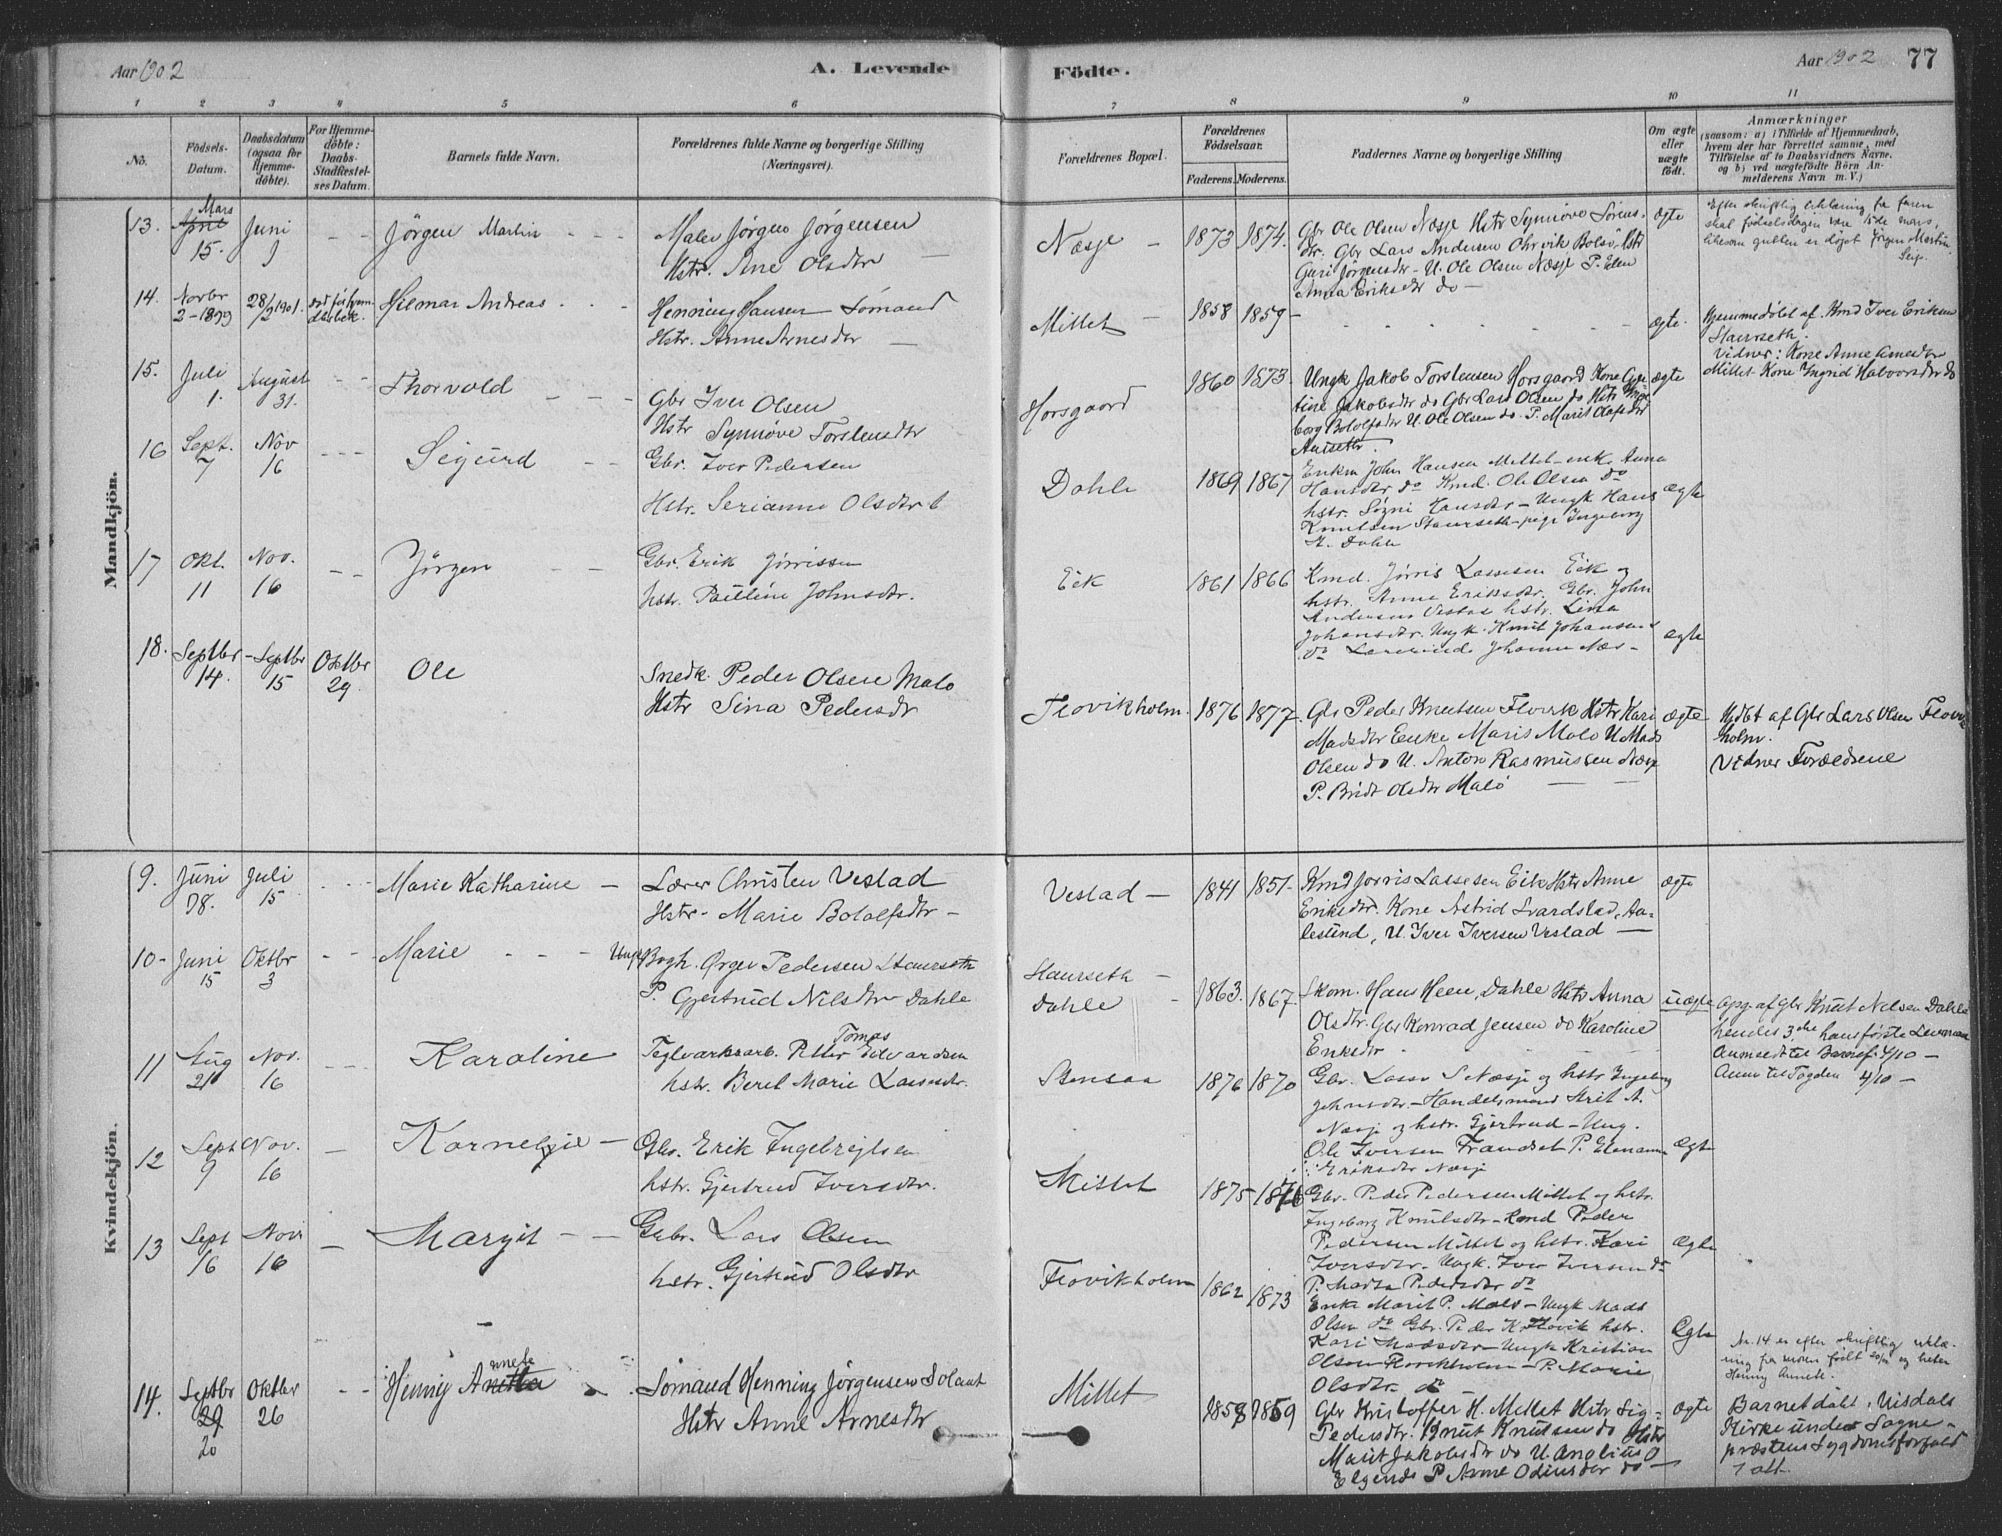 Aar 1902
A. Levende
Födte.
Aar 1902
77
1 2 3 4 5 6 7 8 9 10 11
No.
Födsels-
Datum.
Daabsdatum
(ogsaa for
Hjemme-
döbte).
For Hjemme-
döbte:
Daabs-
Stadfæstel-
ses Datum.
Barnets fulde Navn.
Forældrenes fulde Navne og borgerlige Stilling
(Næringsvei).
Forældrenes Bopæl.
Forældrenes
Födselsaar.
Faderens.
Moderens.
Faddernes Navne og borgerlige Stilling
Om ægte
eller
uægte
födt.
Anmærkninger
(saasom: a) i Tilfælde af Hjemmedaab,
hvem der har forrettet samme, med
Tilföielse af to Daabsvidners Navne,
og b) ved uægtefödte Börn An-
melderens Navn m. V.)
Mandkjön.
13. April Mars 15. Juni 9 Jörgen Martin
Maler Jørgen Jørgensen
Hstr. Ane Olsdtr
Næsje 1873 1874.
Gbr Ole Olsen Næsje Hstr Synnøve Sørens-
dtr. Gbr Lars Andersen Ohrvik Bolsø, Hstr
Guri Jørgensdtr - U. Ole Olsen Næsje P. Elen
Anna Eriksdtr do
ægte
Efter skriftlig erklæring fra faren
skal fødselsdagen være 15de mars,
likesom gutten er døpt Jørgen Martin
14. Novbr 2-1899 28/2 1901. Hilmar Andreas
Henning Hansen Sømand
Hstr. Anne Arnesdtr
Millet 1858 1859
ægte.
Hjemmedøbt af Kmd Iver Eriksen
Staurseth.
Vidner: Kone Anne Arnesdtr
Millet Kone Ingrid Halvorsdtr do
15. Juli 1. August 31. Thorvald
Gbr Iver Olsen
Hstr Synnöve Torstensdtr
Horsgaard 1860 1873.
Ungk Jakob Torstensen Horsgaard Kone Gje-
tine Jakobsdtr do Gbr Lars Olsen do Hstr Inge-
borg Bololfsdtr U Ole Olsen do P. Marit Olafsdtr
ægte
16 Sept. 7 Nov 16 Sigurd
Gbr. Iver Pedersen
Hstr. Serianne Olsdtr
Dahle 1869 1867
Enkm John Hansen Millet - enke Anna
Hansdtr do Kmd. Ole Olsen do
hstr. Signi Hansdtr - Ungk Hans
Knutsen Staurseth - pige Ingeborg
H. Dahle
ægte
17 Okt. 11 Nov. 16 Jörgen
Gbr. Erik Jørrissen
hstr. Pauline Johnsdtr.
Eik 1861 1866
Kmd. Jørris Lassesen Eik og
hstr. Anne Eriksdtr. Gbr. John
Andersen Vestad hstr. Lina
Johansdtr. Ungk. Knut Johansen
do Lærerinde Johanna Næs -
ægte
18. Septbr 14. Septbr 15 Oktbr 29. Ole
Snedk. Peder Olsen Malo
Hstr Sina Pedersdtr
Flovikholm. 1876 1877.
Gbr Peder Knutsen Flovik Hstr Kari
Madsdtr Enke Maris Malo U Mads
Olsen do U. Anton Rasmussen Næsje
P. Brit Olsdtr Malö
ægte
Hjdbt af Gbr Lars Olsen Flovik-
holm.
Vidner Forældrene
Kvindekjön.
9. Juni 28. Juli 15 Marie Katharine
Lærer Christen Vestad
Hstr. Marie Bololfsdtr
Vestad 1841 1851.
Kmd Jørris Lassesen Eik Hstr Anne
Eriksdtr. Kone Astrid Svardstad, Aa-
lesund, U. Iver Iversen Vestad
ægte
10. Juni 15 Oktbr 3 Marie
Ungk Bogh. Ørger Pedersen Staurseth
P. Gjertrud Nilsdtr Dahle
Staurseth
Dahle 1863. 1867.
Skom. Hans Heen, Dahle Hstr Anna
Olsdtr. Gbr Konrad Jensen do Karoline
Eriksdtr
uægte
Opg af Gbr Knut Nilsen Dahle
hendes 3die hans første Leierm.
Anmeldt til Barnef. 4/10 -
Anm til Fogden 4/10 -
11 Aug 21 Nov. 16 Karoline
Teglværksarb. Petter Tomas Edvardsen
hstr. Beret Marie Lassesdtr.
Stensaa 1876 1870
Gbr. Lasse S Næsje og hstr Ingeborg
Johnsdtr. - Handelsmand Arit A.
Næsje og hstr. Gjertrud - Ung.
Ole Iversen Frandset P. Elenanna
Eriksdtr Næsje
Ægte
12 Sept 9 Nov. 16 Kornelgie
Gbr. Erik Ingebrigtsen
hstr. Gjertrud Iversdtr.
Millet 1875 1876
Gbr. Peder Pedersen Millet og hstr.
Ingeborg Knutsdtr - Kmd Peder
Pedersen Millet og hstr. Kari
Iversdtr. Ungk. Iver Iversen do
P. Marta Pedersdtr do
Ægte
13 Sept 16 Novr 16 Margit
Gbr. Lars Olsen
hstr. Gjertrud Olsdtr
Flovikholm 1862 1873
Enke Marit P. Malo - Ungk Mads
Olsen do Gbr. Peder K Flovik hstr.
Kari Madsdtr - Ungk Kristian
Olsen Flovikholm - P. Marie
Olsdtr. do
Ægte
14. Septbr 29 20 Oktbr 26 Henny Anetta nnete
Sømand Henning Jørgensen Solaut
Hstr Anne Arnesdtr
Millet 1858 1859
Gbr Kristoffer H. Millet Hstr Sig-
Pedersdtr. Knut Knutsen do Hstr
Marit Jakobsdtr do U. Anglius O
Elgenes P Anne Odinsdtr do
ægte
Nr. 14 er efter skriftlig erklæ-
ring fra moren født 20/9 og heter
Henny Annete.
Barnet døbt i Visdals
Kirke under Sogne-
præstens Sygdomsforfald